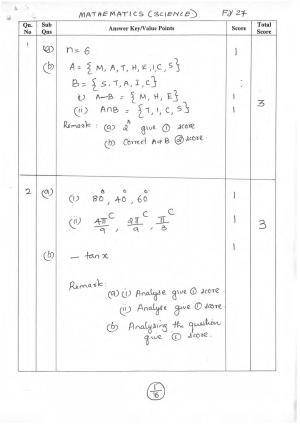 MATHEMATICS (SCIENCE) FY 27
Qn. No Sub Qns Answer Key/Value Points Score Total Score
1 (a) n = 6 1
(b) A = {M, A, T, H, E, I, C, S}
B = {S, T, A, I, C}
(i) A-B = {M, H, E} 1
(ii) A∩B = {T, I, C, S} 1 3
Remark : (a) 2ⁿ give ① score
(b) Correct A & B ② score
2 (a) (i) 80°, 40°, 60° 1
(ii) 4π/9 ᶜ, 2π/9 ᶜ, π/3 ᶜ 1 3
(b) - tan x 1
Remark
(a) (i) Analyse give ① score
(ii) Analyse give ① score
(b) Analysing the question
give ① score.
1/8